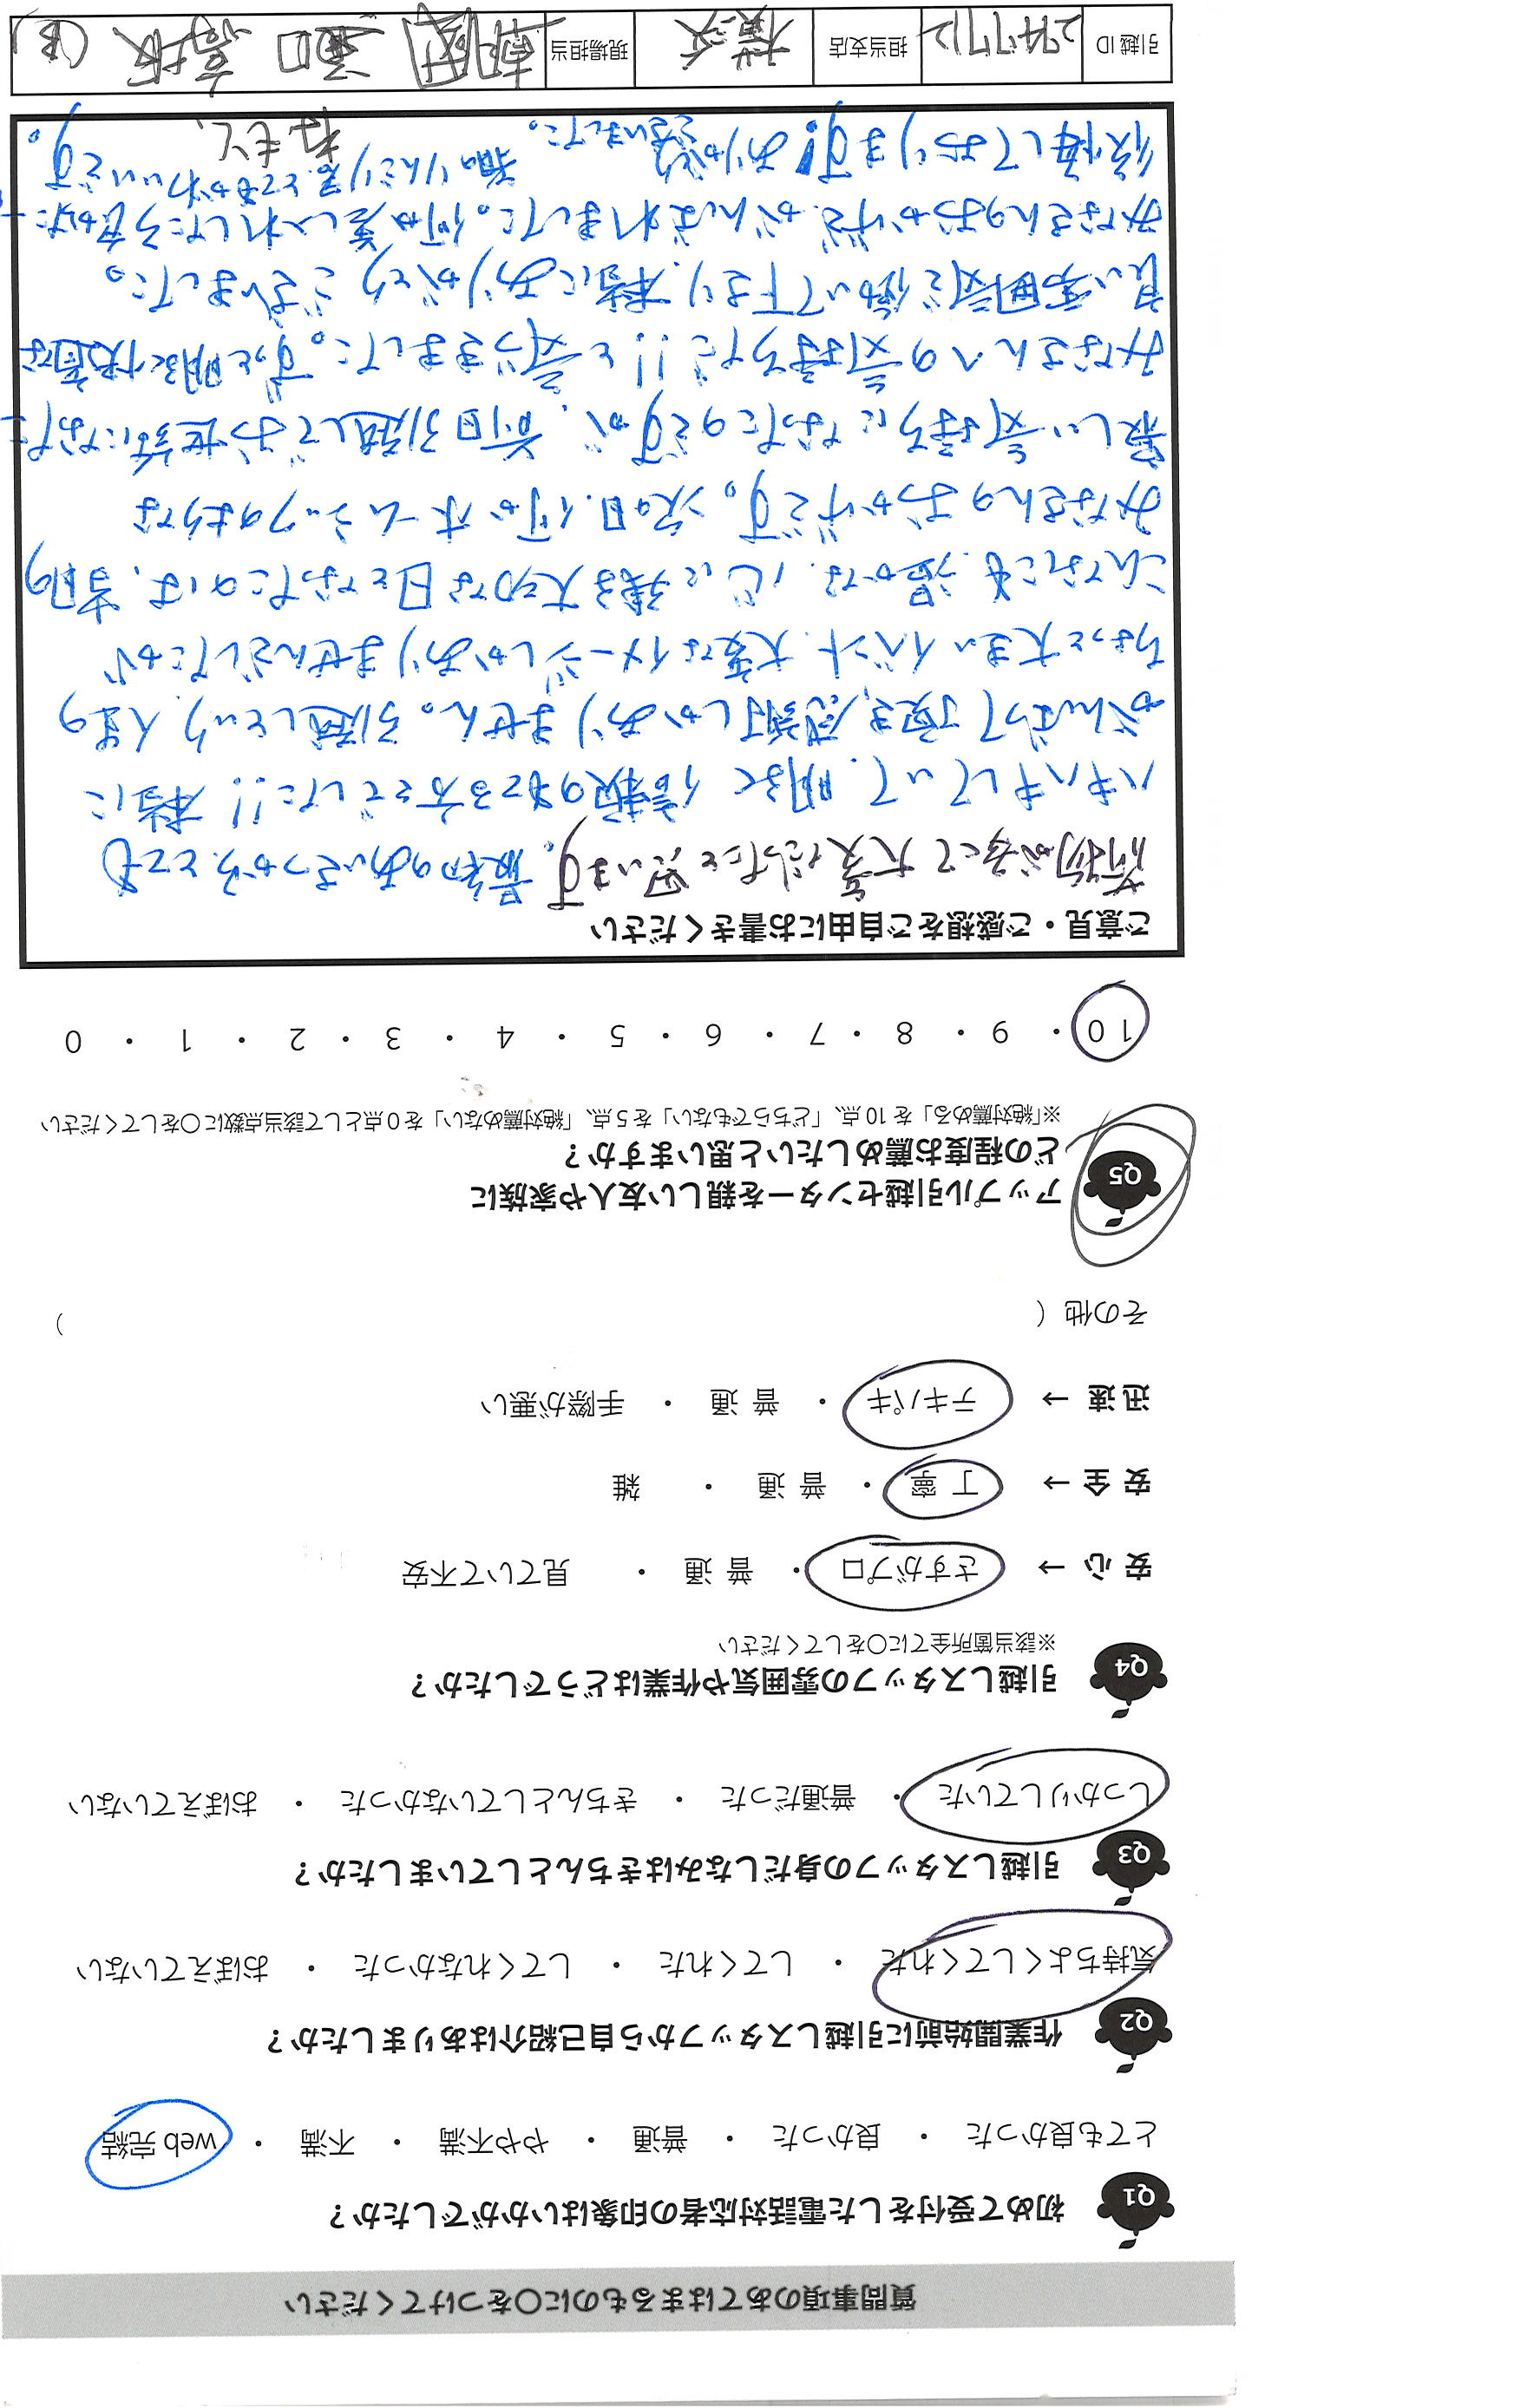 質問事項のあてはまるものに○をつけてください
Q1 初めて受付をした電話対応者の印象はいかがでしたか？
とても良かった ・ 良かった ・ 普通 ・ やや不満 ・ 不満 ・ web 完結
Q2 作業開始前に引越しスタッフから自己紹介はありましたか？
気持ちよくしてくれた ・ してくれた ・ してくれなかった ・ おぼえていない
Q3 引越しスタッフの身だしなみはきちんとしていましたか？
しっかりしていた ・ 普通だった ・ きちんとしていなかった ・ おぼえていない
Q4 引越しスタッフの雰囲気や作業はどうでしたか？
※該当箇所全てに○をしてください
安 心 → さすがプロ ・ 普 通 ・ 見ていて不安
安 全 → 丁 寧 ・ 普 通 ・ 雑
迅 速 → テキパキ ・ 普 通 ・ 手際が悪い
その他（ ）
Q5 アップル引越センターを親しい友人や家族に
どの程度お薦めしたいと思いますか？
※「絶対薦める」を 10 点、「どちらでもない」を 5 点、「絶対薦めない」を 0 点として該当点数に○をしてください
10 ・ 9 ・ 8 ・ 7 ・ 6 ・ 5 ・ 4 ・ 3 ・ 2 ・ 1 ・ 0
ご意見・ご感想をご自由にお書きください
荷物が多くて大変だったと思います。最初のあいさつから、とても
ハキハキしていて、明るく 信頼のもてる方々でした!! 本当に
がんばって頂き、感謝しかありません。引越しという、人生の
ちょっと大きいイベント、大変なイメージしかありませんでしたが
こんなにも温かな、心に残る大切な日となったのは、当日の
みなさんのおかげです。次の日、何かホームシックのような
寂しい気持ちになったのですが、前日引越しでお世話になった
みなさんへの気持ちだ!! と気づきました。ずっと明るく快適な
良い雰囲気で働いて下さり、本当にありがとうございました。
みなさんのおかげで、がんばれました。何か差し入れしたら良かった
後悔しております! ありがとう
ございました。
とてもかわいいです。
引越 ID 担当支店 横浜 現場担当